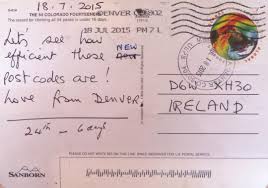 18.7.2015
THE 54 COLORADO FOURTEENERS
DENVER 802
18 JUL 2015 PM 7 L
Let's see how
efficient those NEW
post codes are!
Love from Denver
24th - 6 days
D6W XH30
IRELAND
PLEASE DO NOT WRITE BELOW THIS LINE. SPACE RESERVED FOR U.S. POSTAL SERVICE
SANBORN